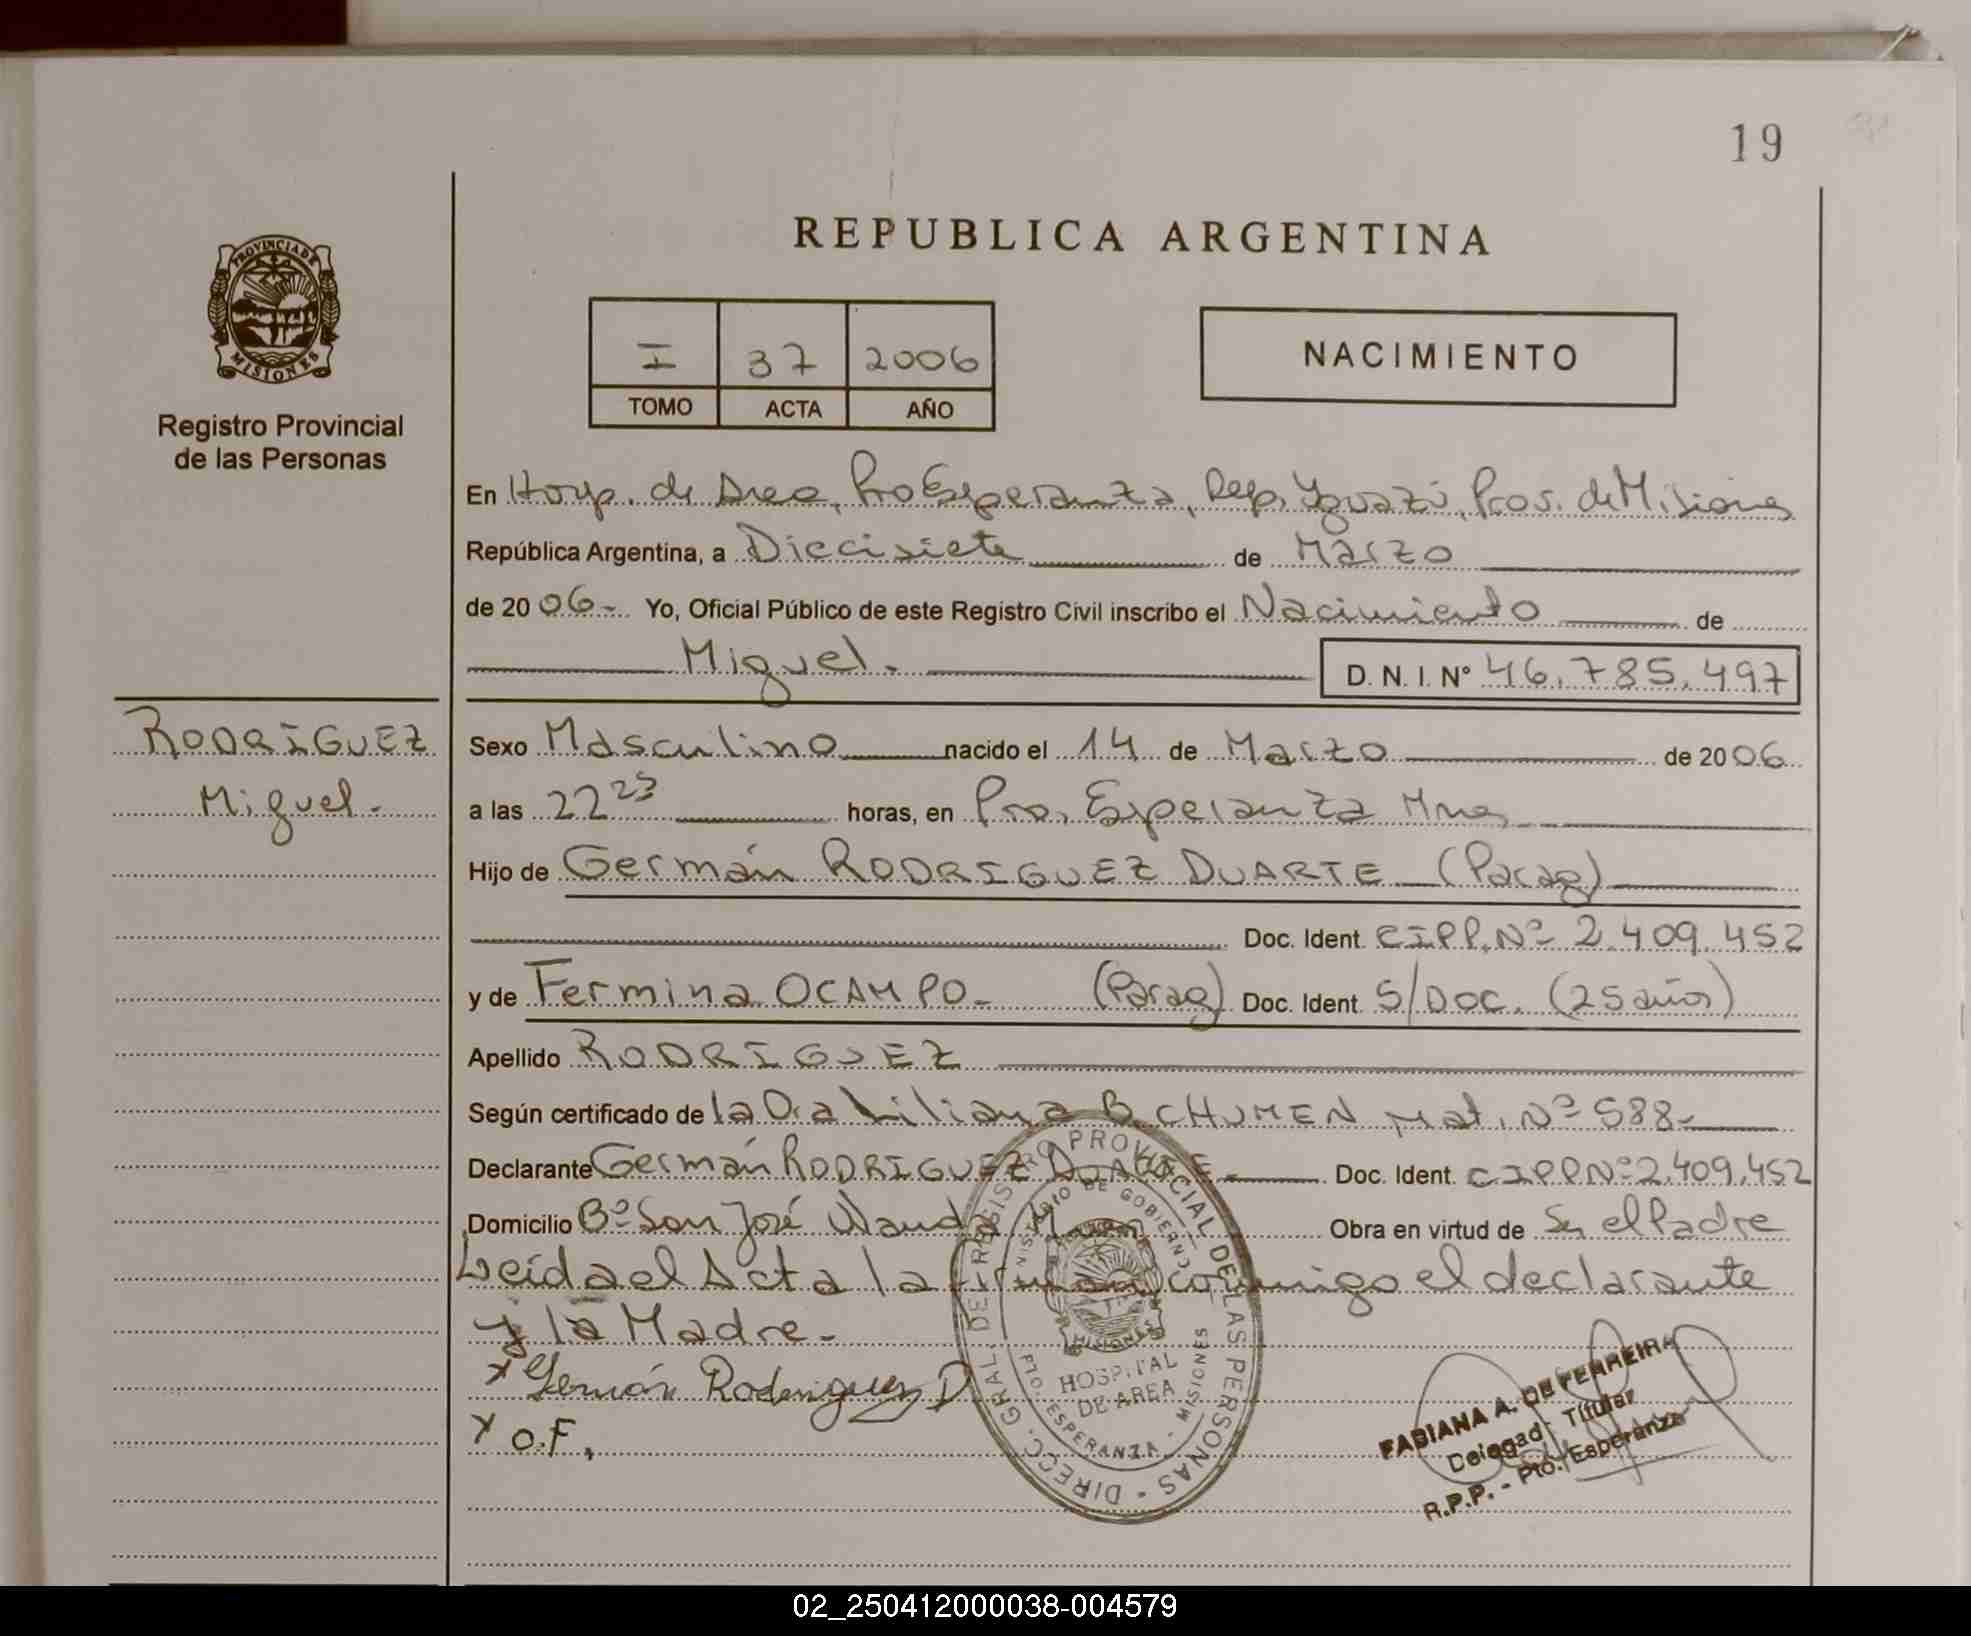 19
REPUBLICA ARGENTINA
PROVINCIA DE
MISIONES
Registro Provincial
de las Personas
I 37 2006
TOMO ACTA AÑO
NACIMIENTO
En Hosp. de Area, Pto Esperanza, Dep. Yguazú, Prov. de Misiones
República Argentina, a Diecisiete de Marzo
de 2006- Yo, Oficial Público de este Registro Civil inscribo el Nacimiento de
Miguel.- D. N. I. Nº 46.785.497
RODRIGUEZ
Miguel.-
Sexo Masculino nacido el 14 de Marzo de 2006
a las 22 23 horas, en Pto, Esperanza Mnes
Hijo de Germán RODRIGUEZ DUARTE (Parag)
Doc. Ident. CIPP.Nº 2.409.452
y de Fermina OCAMPO- (Parag) Doc. Ident. S/DOC. (25 años)
Apellido RODRIGUEZ
Según certificado de la Dra Liliana B. CHUMEN Mat. Nº 588-
Declarante Germán RODRIGUEZ DUARTE Doc. Ident. CIPP Nº 2.409.452
Domicilio Bº San José Wanda Obra en virtud de Ser el Padre
Leída el Acta la firman conmigo el declarante
y la Madre.-
x Germán Rodriguez D
x O.F.
DIRECC. GRAL. DE REGISTRO PROVINCIAL DE LAS PERSONAS
MINISTERIO DE GOBIERNO
MISIONES
HOSPITAL
DE AREA
PTO. ESPERANZA - MISIONES
FABIANA A. DE FERREIRA
Delegad. Titular
R.P.P. - Pto. Esperanza
02_250412000038-004579